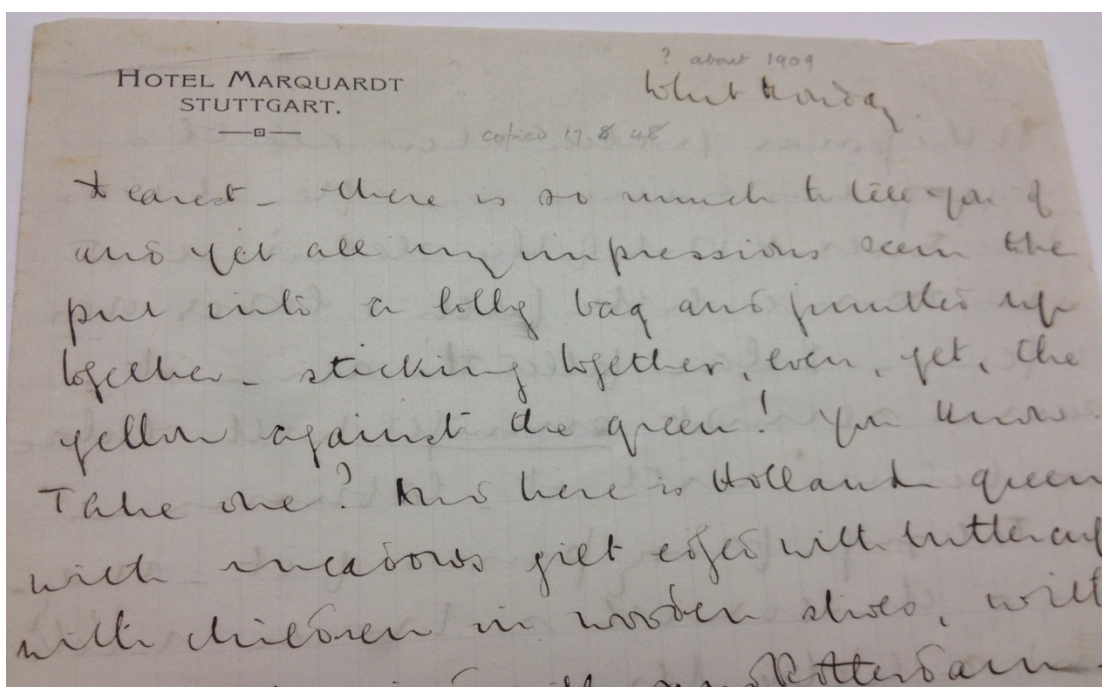 HOTEL MARQUARDT
STUTTGART.
? about 1909
Whit Monday
copied 17.8.48
Dearest – there is so much to tell you of
and yet all my impressions seem to be
put into a lolly bag and jumbled up
together – sticking together, even, yet, the
yellow against the green! You know.
Take one? And here is Holland green
with meadows gilt edged with buttercup
with children in wooden shoes, with
and Rotterdam